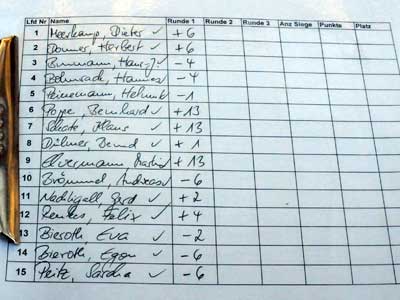 Lfd Nr Name Runde 1 Runde 2 Runde 3 Anz Siege Punkte Platz
1 Meerkamp, Dieter ✓ + 6
2 Donner, Herbert ✓ + 6
3 Hans-J. - 4
4 Hannes - 4
5 Heinemann, Helmut - 1
6 Poppe, Bernhard ✓ + 13
7 Klaus ✓ + 13
8 Bernd ✓ + 1
9 Elvermann + 13
10 Brömmel, Andreas ✓ - 6
11 Nachtigall, Gerd ✓ + 2
12 Felix ✓ + 4
13 Bieroth, Eva ✓ - 2
14 Bieroth, Egon ✓ - 6
15 Heitz, Sascha ✓ - 6